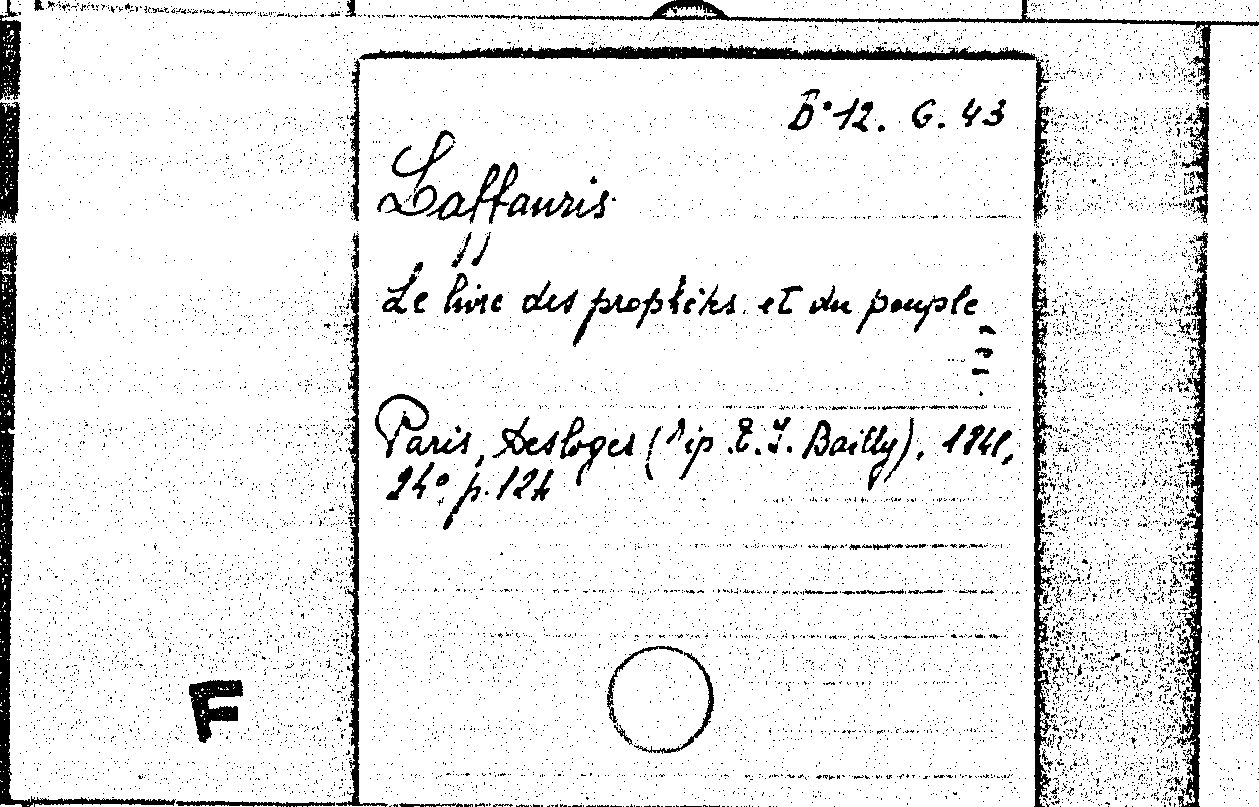 B° 12. G. 43
Laffauris
Le livre des prophètes et du peuple
Paris, Desloges (Tip E. J. Bailly), 1841,
24°, p. 124
F